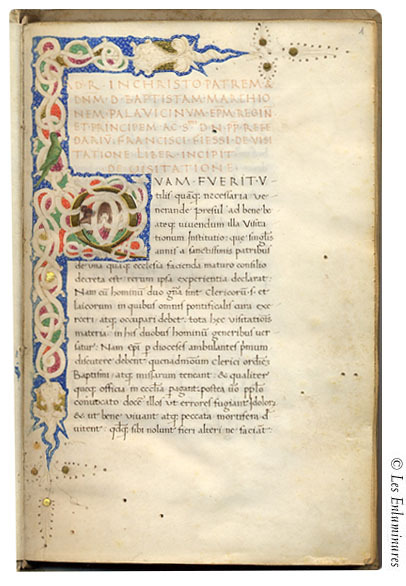 1
AD · R · IN CHRISTO PATREM &
DNM · D · BAPTISTAM · MARCHIO
NEM · PALAVICINVM · EPM · REGIN
ET · PRINCIPEM · AC · S · D · N · PP · REFE
DARIV · FRANCISCI · FIESSI · DE VI
TATIONE · LIBER · INCIPIT ·
DE VISITATIONE ·
QVAM · FVERIT · V
tilis quaq; necessaria Ve
nerande presul ad bene be
ateq; uiuendum illa Visita
tionum institutio que singulis
annis a sanctissimis patribus
de una quaq; ecclesia facienda maturo consilio
decreta est: rerum ipsa experientia declarat.
Nam cũ hominũ duo gña sint Clericorũ: &
laicorum in quibus omnis pontificalis cura exe
rceri atq; occupari debet: tota hec uisitatiõis
materia in his duobus hominũ generibus uer
satur. Nam epĩ p dioceses ambulantes pimum
discutere debent quenadmonũ clerici ordinẽ
Baptismi: atq; missarum teneant: & qualiter
queq; officia in ecclia pagant: postea uo pplo
conuocato doceãt illos Vt errores fugiant ydolorũ
& ut bene uiuant atq; peccata mortifera d
uitent qdq; sibi nolunt fieri alteri ne faciãt.
© Les Enluminures